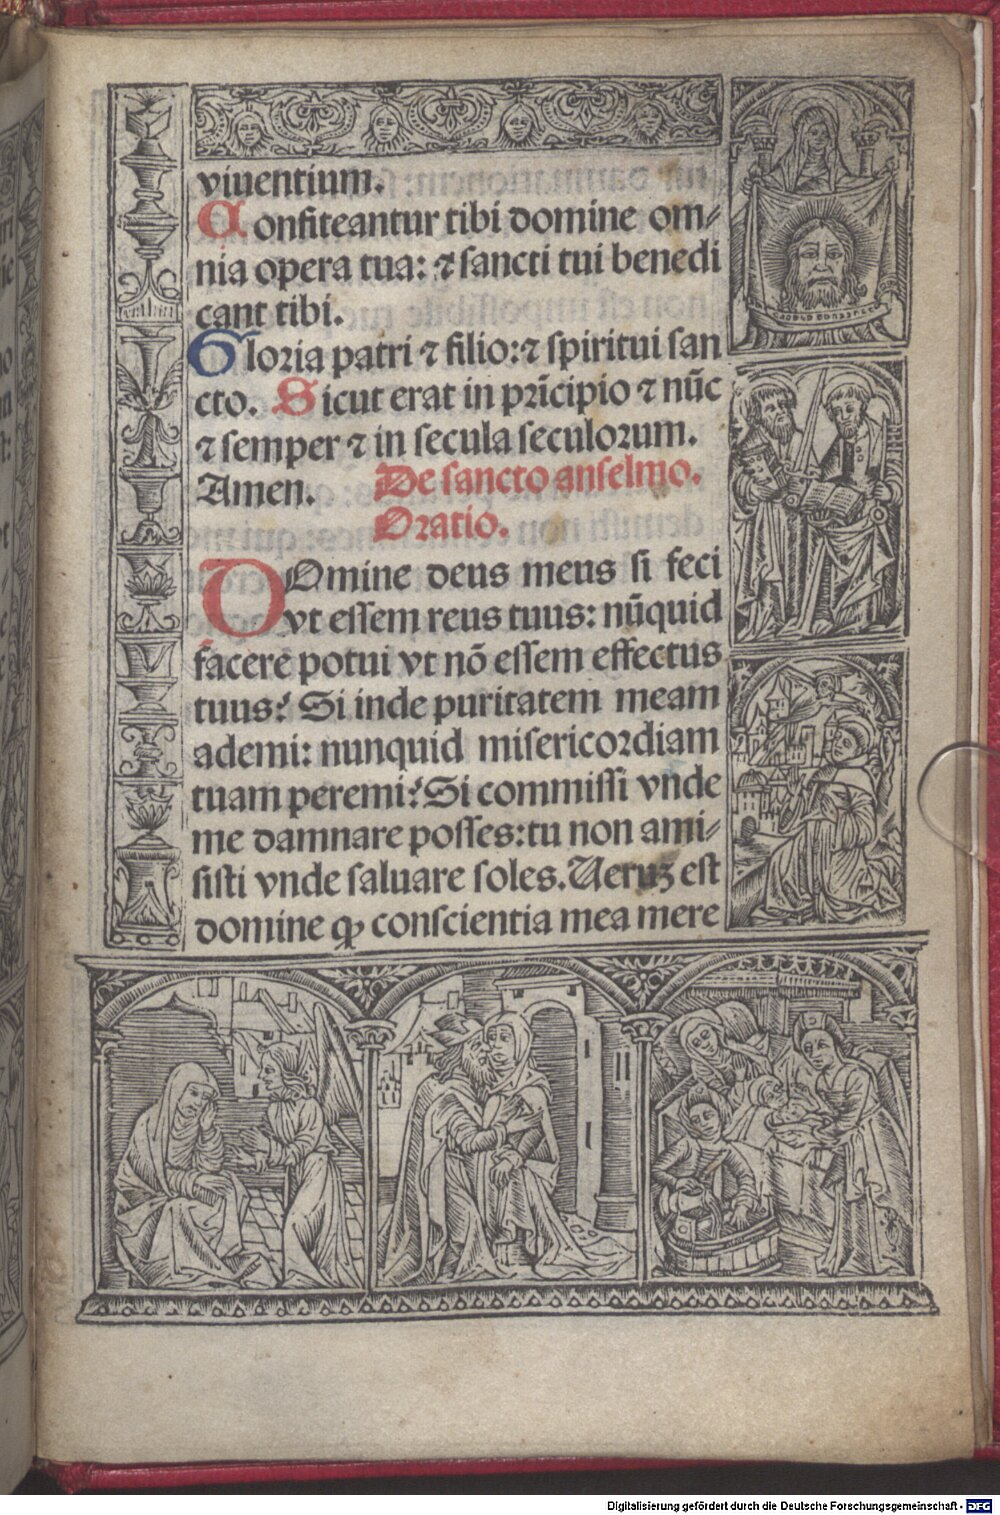 viuentium.
Confiteantur tibi domine om⸗
nia opera tua: ⁊ sancti tui benedi
cant tibi.
Gloria patri ⁊ filio: ⁊ spiritui san
cto. Sicut erat in prīcipio ⁊ nūc
⁊ semper ⁊ in secula seculorum.
Amen. De sancto anselmo.
Oratio.
DOmine deus meus si feci
vt essem reus tuus: nūquid
facere potui vt nō essem effectus
tuus? Si inde puritatem meam
ademi: nunquid misericordiam
tuam peremi? Si commissi vnde
me damnare posses: tu non ami⸗
sisti vnde saluare soles. Ueruꝫ est
domine ꝙ conscientia mea mere
Digitalisierung gefördert durch die Deutsche Forschungsgemeinschaft - DFG